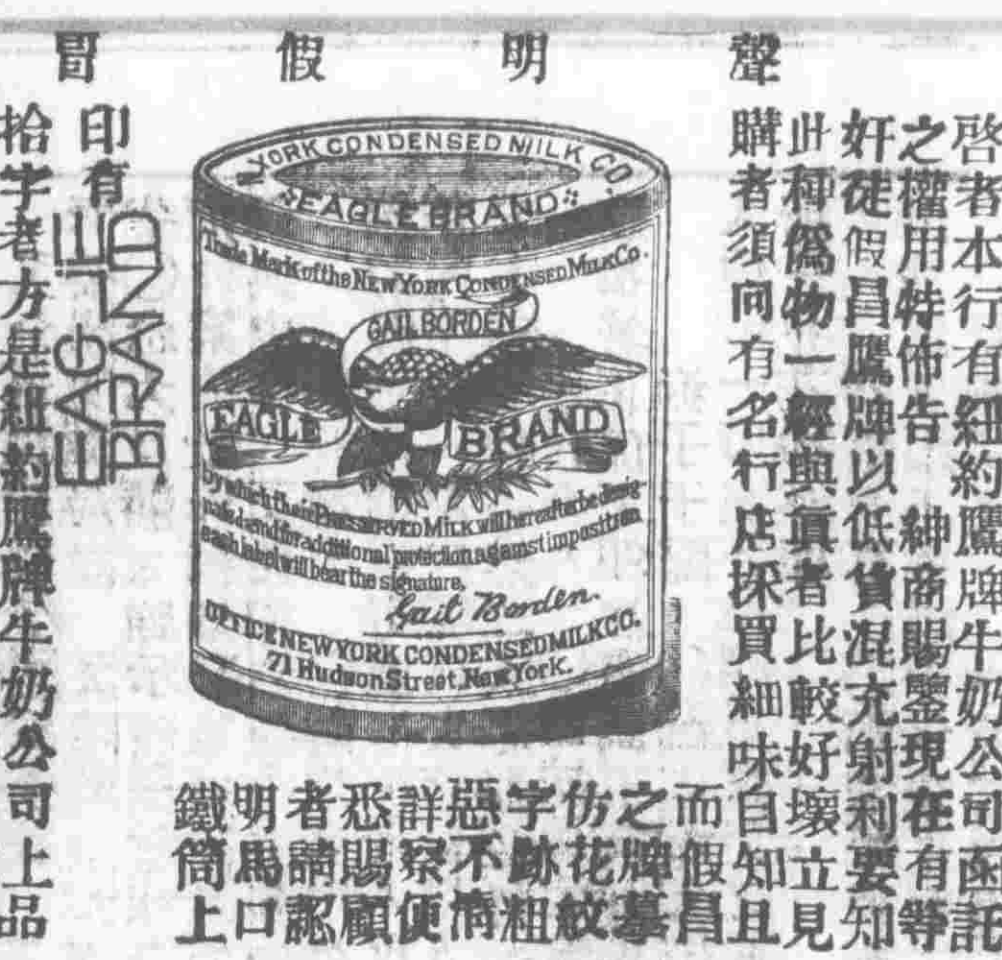 聲明假冒
啓者本行有紐約鷹牌牛奶公司函託
之權用特佈告 紳商賜鑒現在有等
奸徒假冒鷹牌以低貨混充射利要知
此種僞物一經與眞者比較好壞立見
購者須向有名行店採買細味自知且
而假冒
之牌摹
仿花紋
字跡粗
惡不清
詳察便
悉賜顧
者請認
明馬口
鐵筒上
印有
EAGLE
BRAND
拾字者方是紐約鷹牌牛奶公司上品
YORK CONDENSED MILK CO.
EAGLE BRAND
Trade Mark of the NEW YORK CONDENSED MILK CO.
GAIL BORDEN
EAGLE BRAND
by which their PRESERVED MILK will hereafter be desig-
nated and for additional protection against imposition
each label will bear the signature,
Gail Borden.
OFFICE NEW YORK CONDENSED MILK CO.
71 Hudson Street, New York.